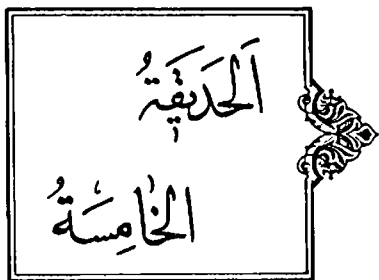 اَلحَديقَةُ
الخَامِسَةُ